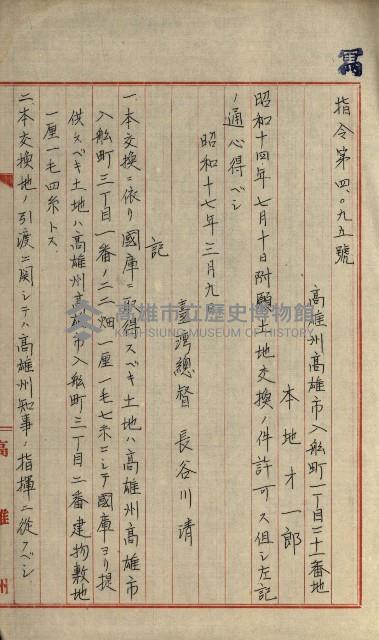 寫
指令第四〇九五號
高雄州高雄市入船町一丁目二十一番地
本地才一郎
昭和十四年七月十日附願土地交換ノ件許可ス但シ左記
ノ通心得ベシ
昭和十七年三月九日
臺灣總督 長谷川清
記
一、本交換ニ依リ國庫ニ取得スベキ土地ハ高雄州高雄市
入船町三丁目一番ノ二二畑一厘一毛七糸ニシテ國庫ヨリ提
供スベキ土地ハ高雄州高雄市入船町三丁目二番建物敷地
一厘一毛四糸トス
二、本交換地ノ引渡ニ関シテハ高雄州知事ノ指揮ニ從フベシ
高雄州
高雄市立歷史博物館
KAOHSIUNG MUSEUM OF HISTORY